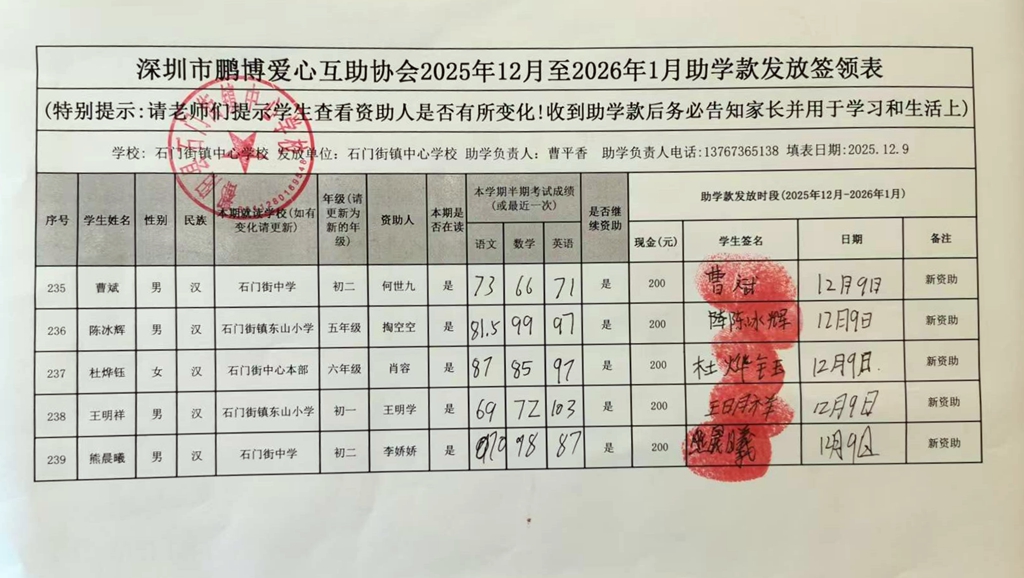 深圳市鹏博爱心互助协会2025年12月至2026年1月助学款发放签领表
(特别提示:请老师们提示学生查看资助人是否有所变化!收到助学款后务必告知家长并用于学习和生活上)
学校: 石门街镇中心学校 发放单位: 石门街镇中心学校 助学负责人: 曹平香 助学负责人电话:13767365138 填表日期:2025.12.9
序号 学生姓名 性别 民族 本期就读学校(如有变化请更新) 年级(请更新为新的年级) 资助人 本期是否在读 本学期半期考试成绩(或最近一次) 是否继续资助 助学款发放时段(2025年12月-2026年1月)
语文 数学 英语 现金(元) 学生签名 日期 备注
235 曹斌 男 汉 石门街中学 初二 何世九 是 73 66 71 是 200 曹斌 12月9日 新资助
236 陈冰辉 男 汉 石门街镇东山小学 五年级 掏空空 是 81.5 99 97 是 200 陈冰辉 12月9日 新资助
237 杜烨钰 女 汉 石门街中心本部 六年级 肖容 是 87 85 97 是 200 杜烨钰 12月9日. 新资助
238 王明祥 男 汉 石门街镇东山小学 初一 王明学 是 69 72 103 是 200 王明祥 12月9日 新资助
239 熊晨曦 男 汉 石门街中学 初二 李娇娇 是 98 87 是 200 熊晨曦 12月9日 新资助
石门街镇中心学校